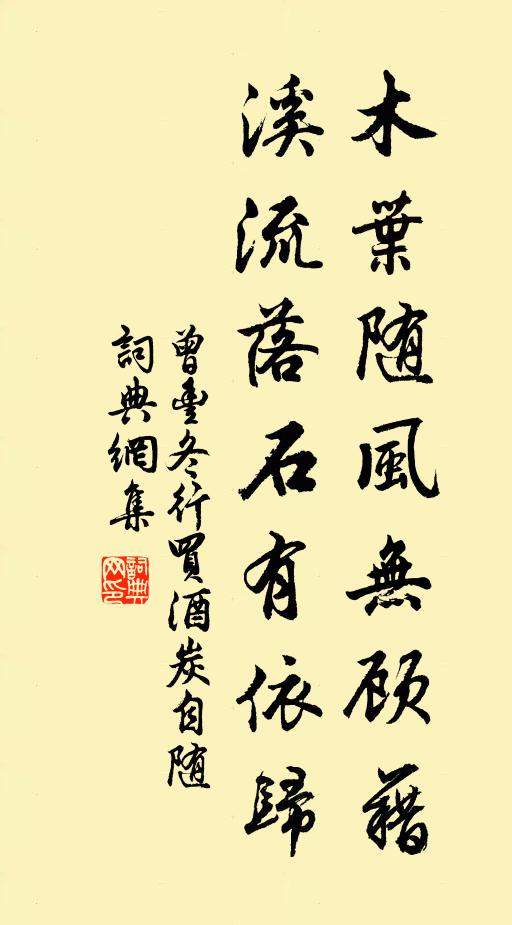 木葉随風無顾藉
溪流落石有依歸
曾豊冬行買酒炭自随
詞典網集
詞典網印